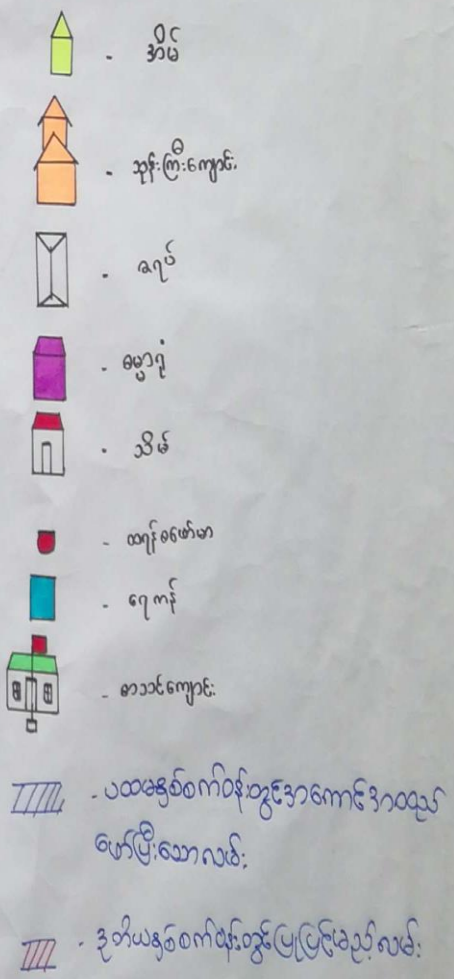 - အိမ်
- ဘုန်းကြီးကျောင်း
- ဇရပ်
- ဓမ္မာရုံ
- သိမ်
- ထရန်စဖော်မာ
- ရေကန်
- စာသင်ကျောင်း
- ပထမနှစ်စက်ဝန်းတွင်အကောင်အထည်
ဖော်ပြီးသောလမ်း
- ဒုတိယနှစ်စက်ဝန်းတွင်ပြုပြင်မည့်လမ်း